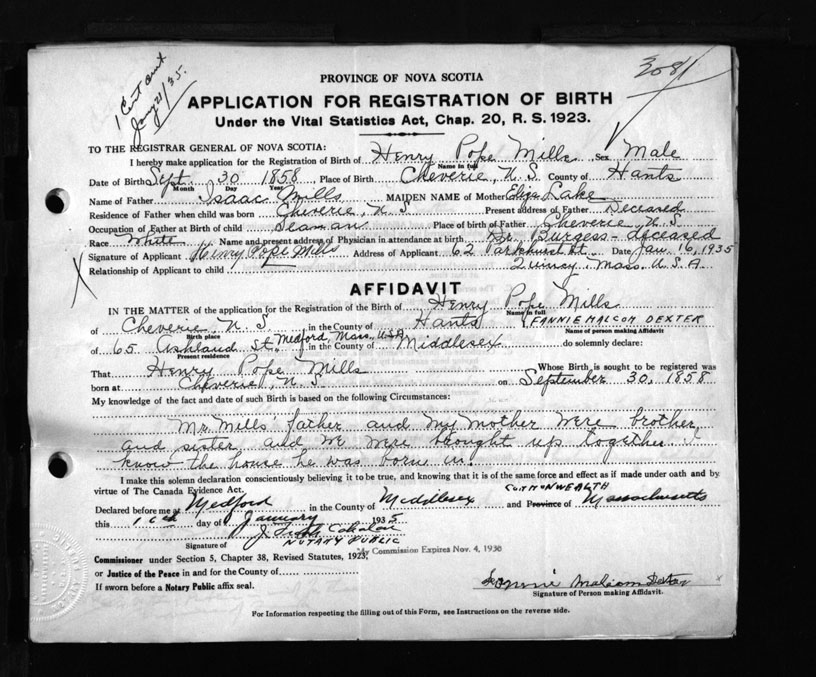 1 Cent
Jany 21/35.
3081
PROVINCE OF NOVA SCOTIA
APPLICATION FOR REGISTRATION OF BIRTH
Under the Vital Statistics Act, Chap. 20, R. S. 1923.
TO THE REGISTRAR GENERAL OF NOVA SCOTIA:
I hereby make application for the Registration of Birth of Henry Pope Mills Sex Male
Name in full
Date of Birth Sept. 30 1858 Place of Birth Cheverie, N.S. County of Hants
Month Day Year
Name of Father Isaac Mills MAIDEN NAME of Mother Eliza Lake
Residence of Father when child was born Cheverie, N.S. Present address of Father Deceased
Occupation of Father at Birth of child Seaman Place of birth of Father Cheverie, N.S.
Race White Name and present address of Physician in attendance at birth Dr. Burgess - deceased
Signature of Applicant Henry Pope Mills Address of Applicant 62 Parkhurst St. Date Jan. 16, 1935
Relationship of Applicant to child Quincy, Mass. U.S.A.
X
AFFIDAVIT
IN THE MATTER of the application for the Registration of the Birth of Henry Pope Mills
Name in full
of Cheverie, N.S. in the County of Hants FANNIE MALCOM DEXTER
Birth place Name of person making Affidavit
of 65 Ashland St. Medford, Mass., USA in the County of Middlesex do solemnly declare:
Present residence
That Henry Pope Mills Whose Birth is sought to be registered was
born at Cheverie, N.S. on September 30, 1858
My knowledge of the fact and date of such Birth is based on the following Circumstances:
Mr. Mills' father and my mother were brother
and sister and we were brought up together. I
know the house he was born in.
I make this solemn declaration conscientiously believing it to be true, and knowing that it is of the same force and effect as if made under oath and by
virtue of The Canada Evidence Act.
COMMONWEALTH
Declared before me at Medford in the County of Middlesex and Province of Massachusetts
this 16th day of January 1935
Signature of
NOTARY PUBLIC
Commissioner under Section 5, Chapter 38, Revised Statutes, 1923, My Commission Expires Nov. 4, 1938
or Justice of the Peace in and for the County of
If sworn before a Notary Public affix seal.
Fannie Malcom Dexter X
Signature of Person making Affidavit.
For Information respecting the filling out of this Form, see Instructions on the reverse side.